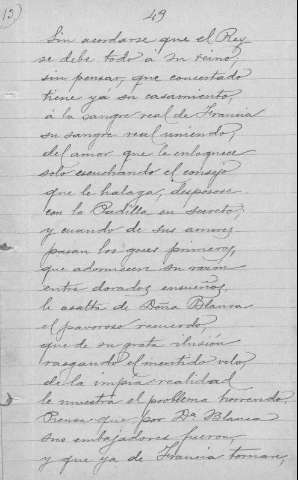 15) 49
Sin acordarse que el Rey
se debe todo á su reino,
sin pensar, que concertado
tiene yá su casamiento,
á la sangre real de Francia
su sangre real uniendo,
del amor que le enloquece
solo escuchando el consejo
que le halaga, despósose
con la Padilla en secreto,
y cuando de sus amores
pasan los goces primeros,
que adormecen su razón
entre dorados ensueños,
le asalta de Doña Blanca
el pavoroso recuerdo,
que de su grata ilusión
rasgando el mentido velo,
de la impía realidad
le muestra el problema horrendo.
Piensa que por Dª Blanca
sus embajadores fueron,
y que ya de Francia tornan,